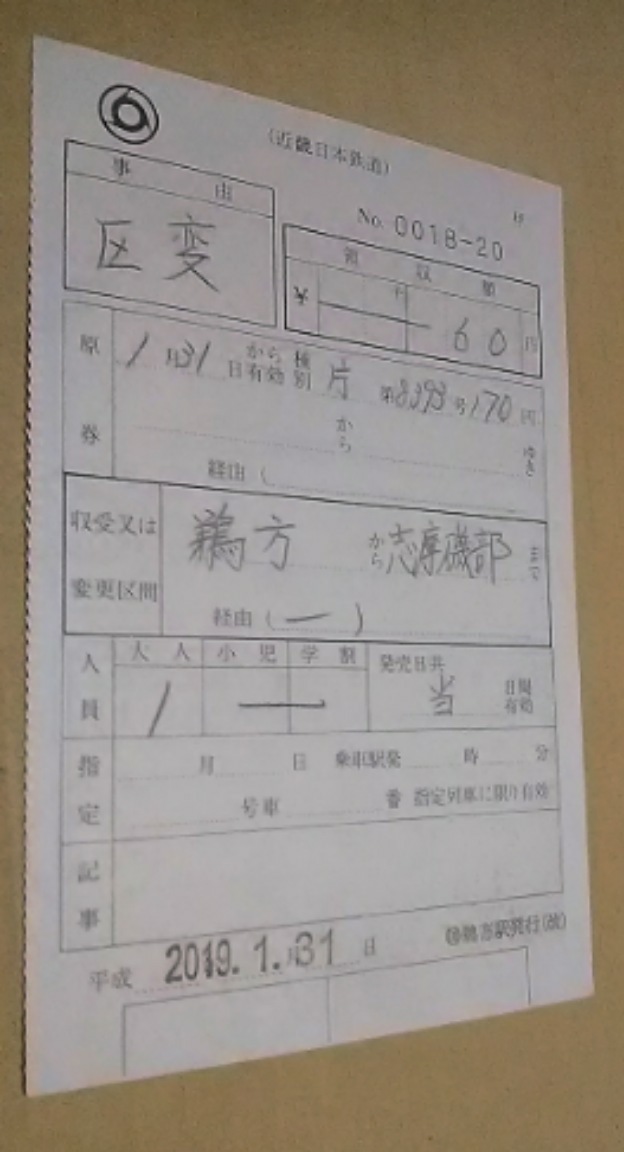 (近畿日本鉄道)
事由
No. 0018-20
区変
領収額
¥ 千 60 円
原券
1月31日から有効 種別 片 第8393号 170円
から ゆき
経由(
収受又は変更区間
鵜方から志摩磯部まで
経由(ー)
人員
大人 小児 学割 発売日共
1 ー 当 日間有効
指定
月 日 乗車駅発 時 分
号車 番 指定列車に限り有効
記事
平成 2019.1.月31日
駅発行(改)